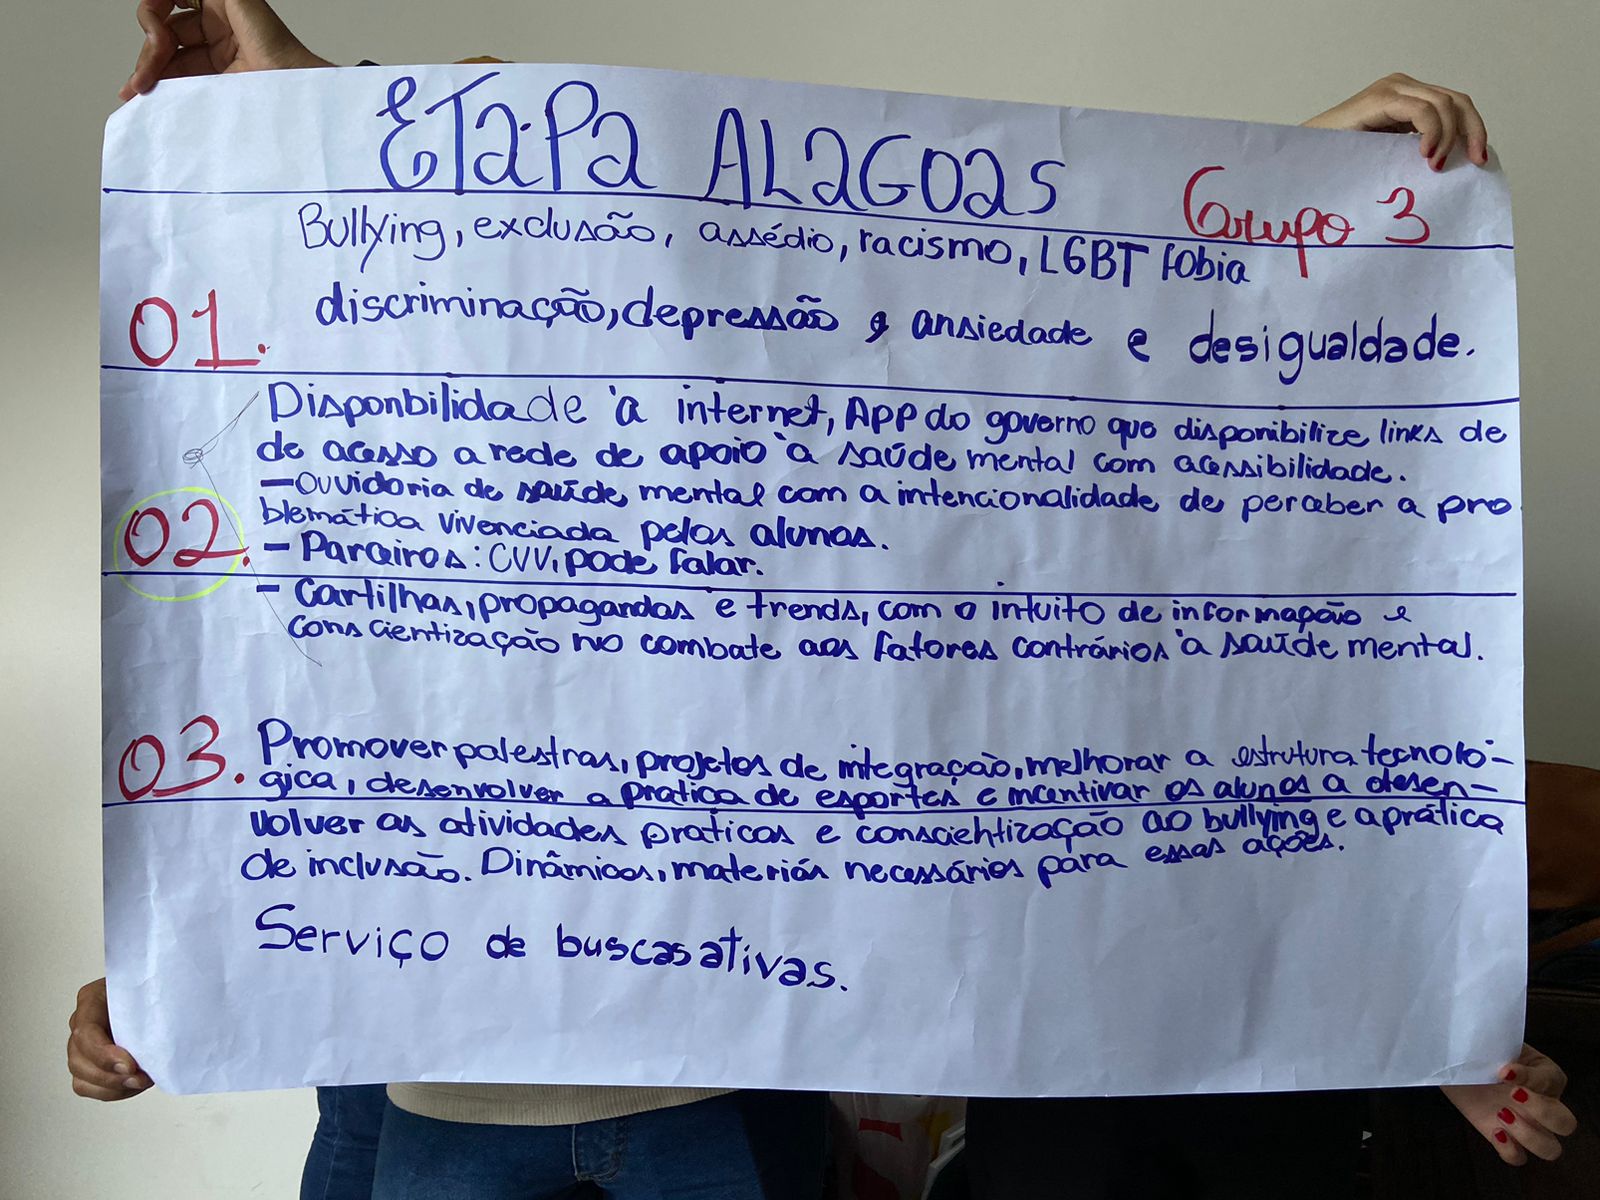 ETAPA ALAGOAS
Grupo 3
Bullying, exclusão, assédio, racismo, LGBT fobia
01. discriminação, depressão, ansiedade e desigualdade.
Disponbilidade à internet, App do governo que disponibilize links de
de acesso a rede de apoio à saúde mental com acessibilidade.
- Ouvidoria de saúde mental com a intencionalidade de perceber a pro
blemática vivenciada pelos alunos.
02. - Parceiros: CVV, pode falar.
- Cartilhas, propagandas e trends, com o intuito de informação e
conscientização no combate aos fatores contrários à saúde mental.
03. Promover palestras, projetos de integração, melhorar a estrutura tecnoló-
gica, desenvolver a pratica de esportes e incentivar os alunos a desen-
volver as atividades praticas e conscientização ao bullying e a prática
de inclusão. Dinâmicas, materiás necessários para essas ações.
Serviço de buscas ativas.